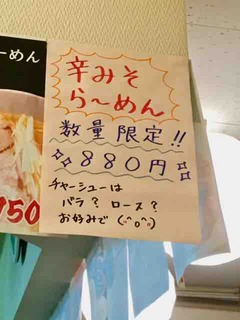 らーめん
150
辛みそ
ら〜めん
数量 限定!!
880円
チャーシューは
バラ? ロース?
お好みで (^o^)